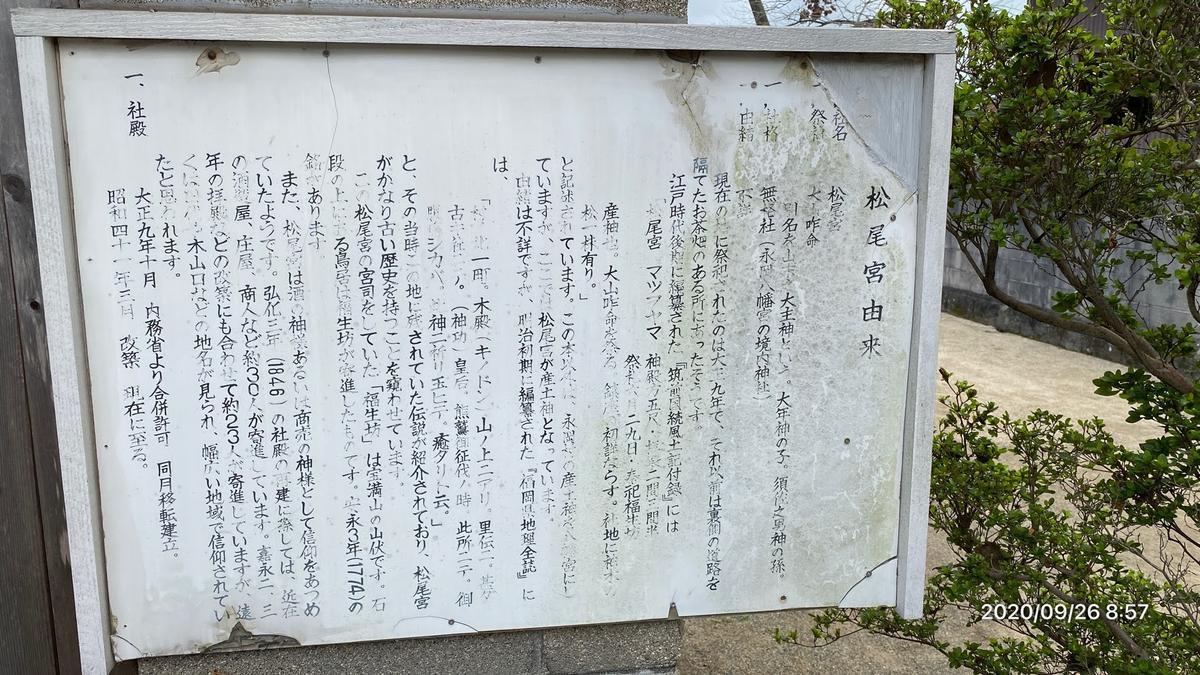 松尾宮由来
社名 松尾宮
一、祭神 大山咋命
名を山末之大主神という。大年神の子。須佐之男神の孫。
一、社格 無格社（永岡八幡宮の境内神社）
一、由緒 不詳
現在の地に祭祀されたのは大正九年で、それ以前は裏側の道路を
隔てたお茶畑のある所にあったそうです。
江戸時代後期に編纂された『筑前国続風土記付録』には
松尾宮 マツヲヤマ 神殿 五尺 拝殿二間三間半
祭礼 二九日 奉祀福生坊
産神也。大山咋命を祭る 鎮座 初詳ならす。社地に神木の
松一株有り。」
と記述されています。この本以外は、永岡の産土神を八幡宮にし
ていますが、ここでは松尾宮が産土神となっています。
由緒は不詳ですが、明治初期に編纂された『福岡県地理全誌』に
は、
「 北一町。木殿（キノドン）山ノ上ニアリ。里伝ニ
古 社ニテ。（神功）皇后。熊鷲御征伐ノ時。此所ニテ。御
シカバ。神ニ祈リ玉ヒテ。癒タリト云。」
と、その当時この地に残されていた伝説が紹介されており、松尾宮
がかなり古い歴史を持つことを窺わせています。
この松尾宮の宮司をしていた「福生坊」は宝満山の山伏です。石
段の上にある鳥居は福生坊が寄進したものです。安永3年(1774)の
銘があります
また、松尾宮は酒の神様あるいは商売の神様として信仰をあつめ
ていたようです。弘化三年（1846）の社殿の再建に際しては、近在
の酒造屋、庄屋、商人など約30人が寄進しています。嘉永二、三
年の拝殿などの改築にも合わせて約23人が寄進していますが、遠
くは 木山口などの地名が見られ、幅広い地域で信仰されてい
たと思われます。
一、社殿 大正九年十月 内務省より合併許可 同月移転建立。
昭和四十一年三月 改築 現在に至る。
2020/09/26 8:57